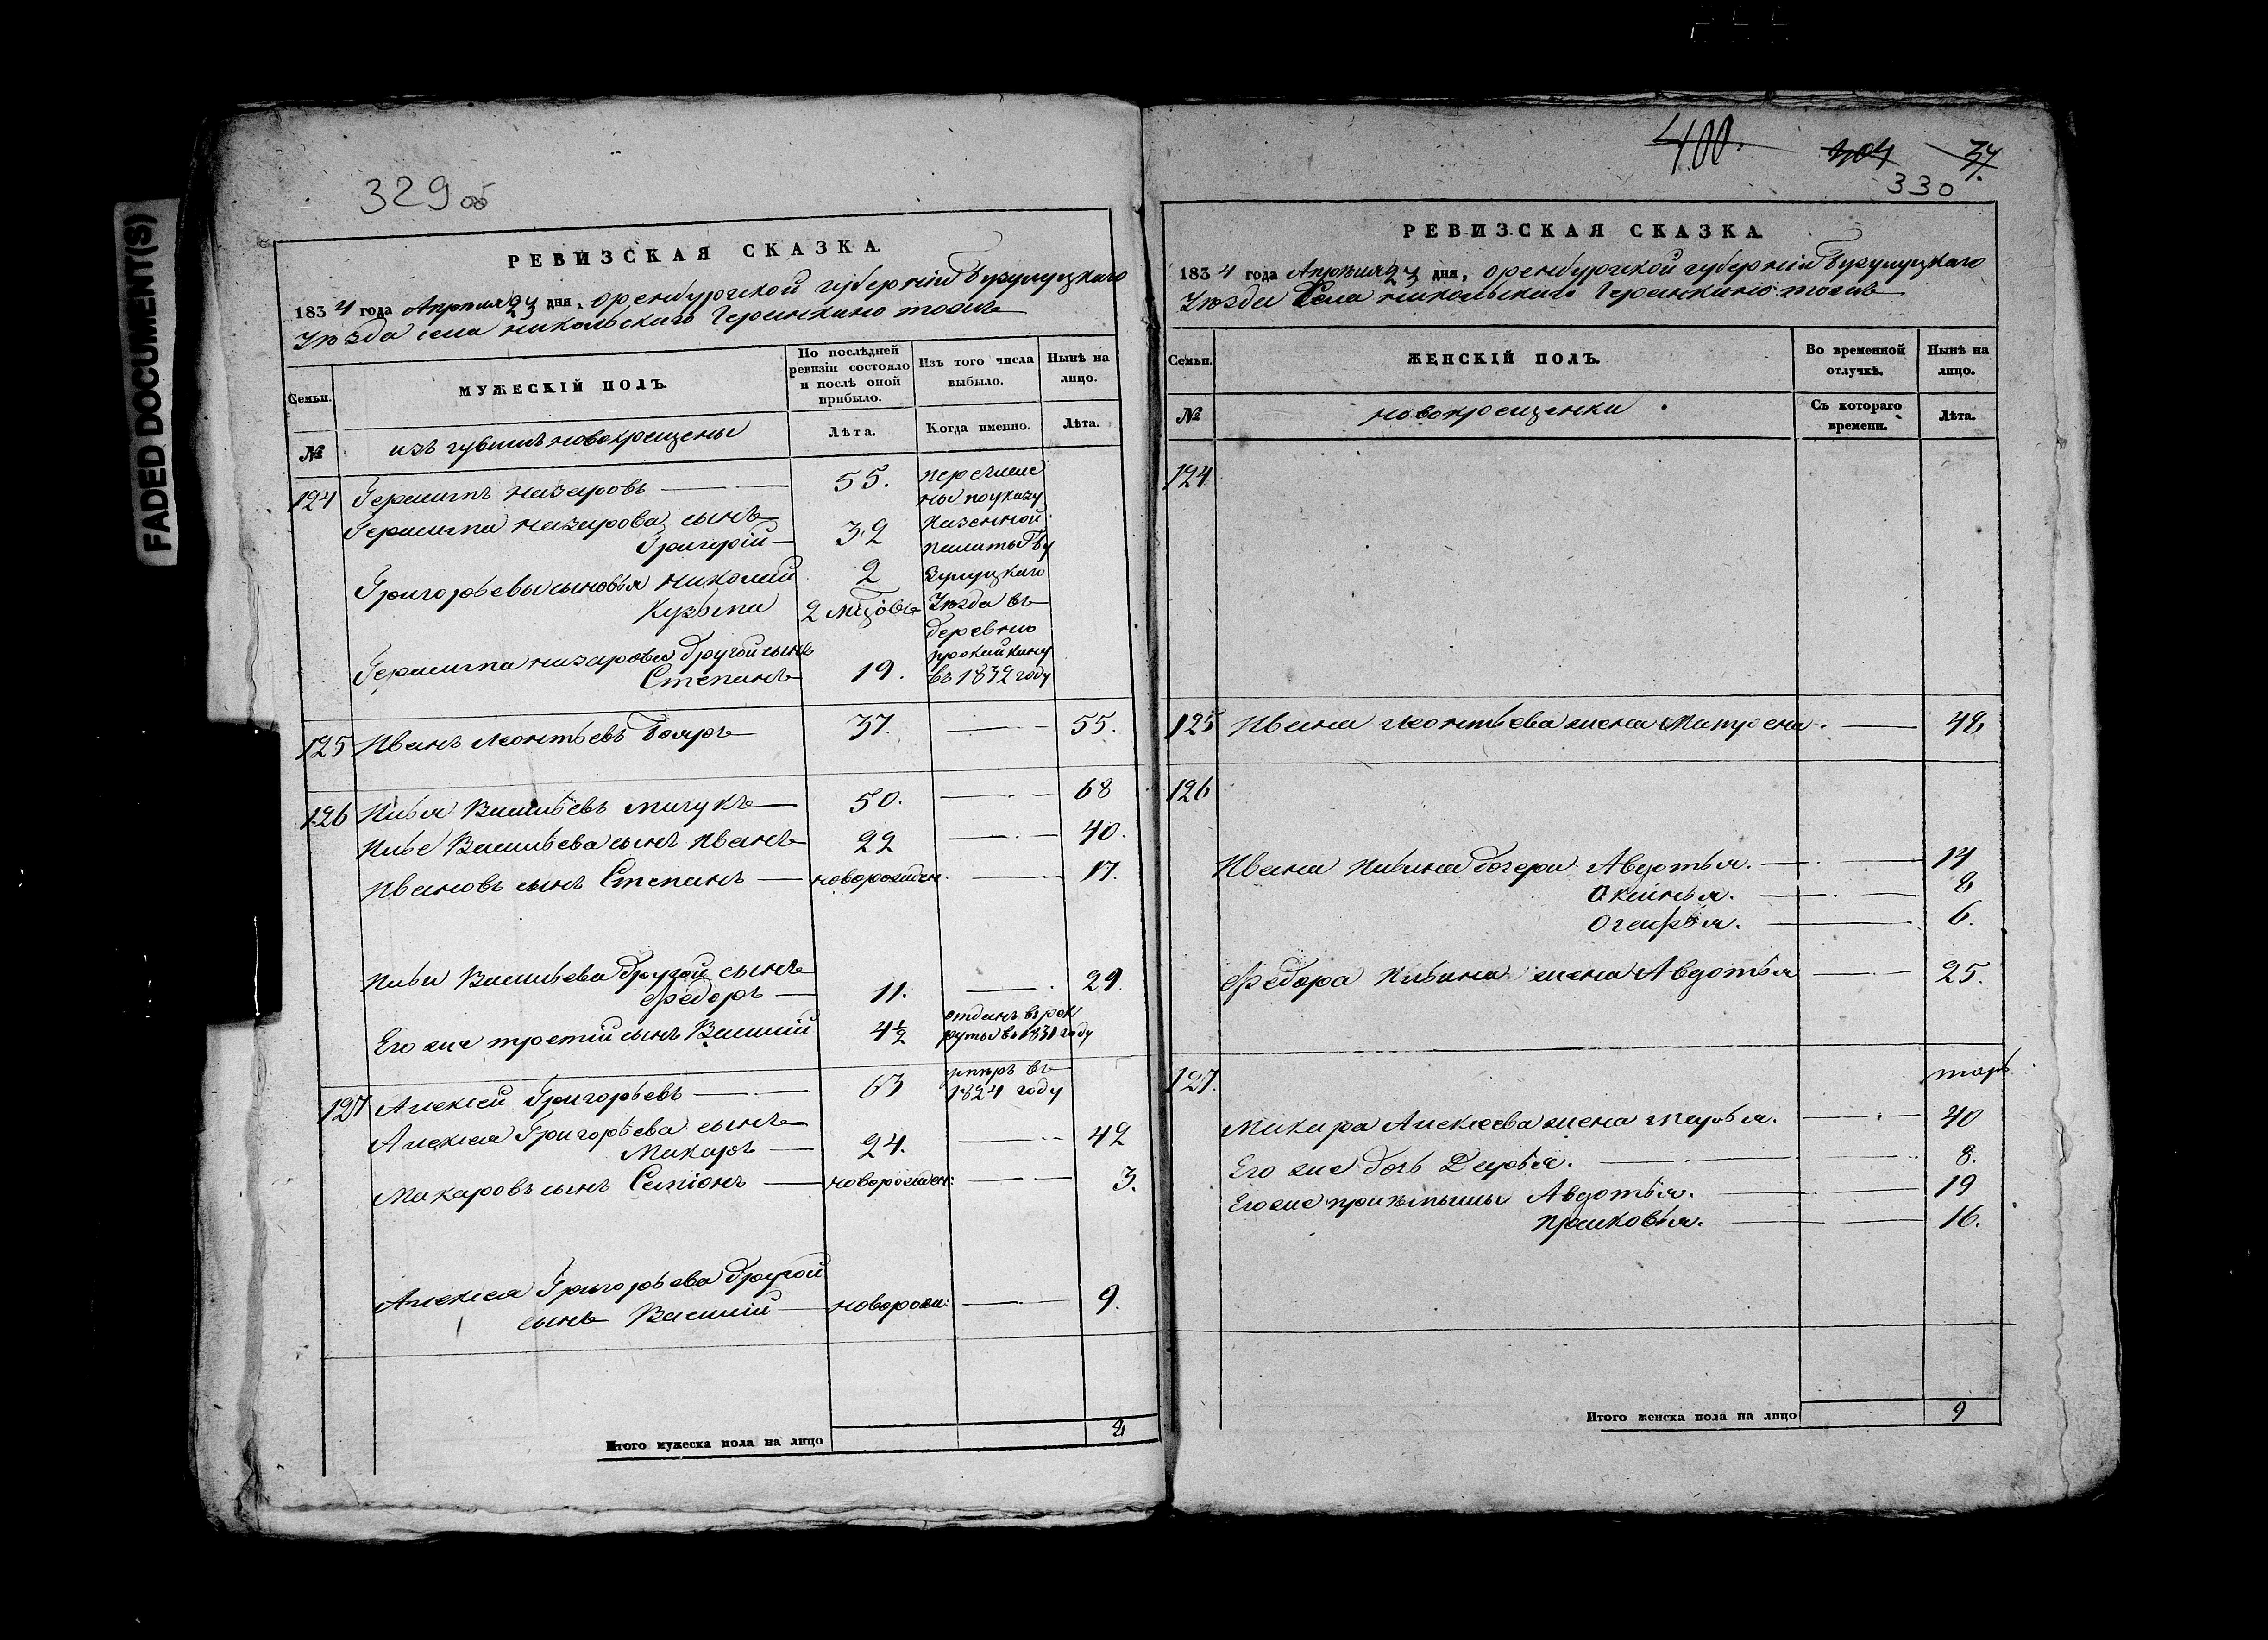 FADED DOCUMENT(S)
329 об
РЕВИЗСКАЯ СКАЗКА.
1834 года Апреля 23 дня, оренбургской губернiи Бузулуцкаго
Уезда села никольскаго Геранкино тожъ
Семьи.
МУЖЕСКIЙ ПОЛЪ.
По послѣдней ревизiи состояло и послѣ оной прибыло.
Изъ того числа выбыло.
Нынѣ на лицо.
№
изъ чувашъ новокрещены
Лѣта.
Когда именно.
Лѣта.
124 Герасимъ назаровъ 55. перечисле
ны поуказу
Герасима назарова сынъ казенной
Григорiй 32 палаты Бу
Григорьевы сыновья николай 2 зулуцкаго
Кузьма 2 мѣцовъ Уезда въ
деревню
Герасима назарова другой сынъ
Степанъ 19. въ 1832 году
125 Иванъ леонтьевъ Бояръ 37. 55.
126 Илья Васильевъ мичукъ 50. 68
Ильи Васильева сынъ Иванъ 22 40.
Ивановъ сынъ Степанъ новорожден. 17.
Ильи Васильева другой сынъ
Федоръ 11. 29.
Его же третiй сынъ Василiй 4½ отданъ въ рек
руты въ 1831 году
127 Алексѣй Григорьевъ 63 умеръ въ
1824 году
Алексея Григорьева сынъ
Макаръ 24. 42
Макаровъ сынъ Семiонъ новорожден: 3.
Алексея Григорьева другой
сынъ Василiй новорож: 9.
Итого мужеска пола на лицо 8
400.
304
37.
330
РЕВИЗСКАЯ СКАЗКА.
1834 года Апреля 23 дня, оренбургской губернiи Бузулуцкаго
Уезда Села никольскаго Геранкино тожъ
Семьи.
ЖЕНСКIЙ ПОЛЪ.
Во временной отлучкѣ.
Нынѣ на лицо.
№
новокрещенки
Съ котораго времени.
Лѣта.
124
125 Ивана леонтьева жена Матрена. 48
126
Ивана Ильина дочери Авдотья. 14
Оксинья. 8
6.
Федора Ильина жена Авдотья 25.
127.
Макара Алексеева жена марья. 40
Его же дочь Дарья. 8.
Его же прiемыши Авдотья. 19
прасковья. 16.
Итого женска пола на лицо 9